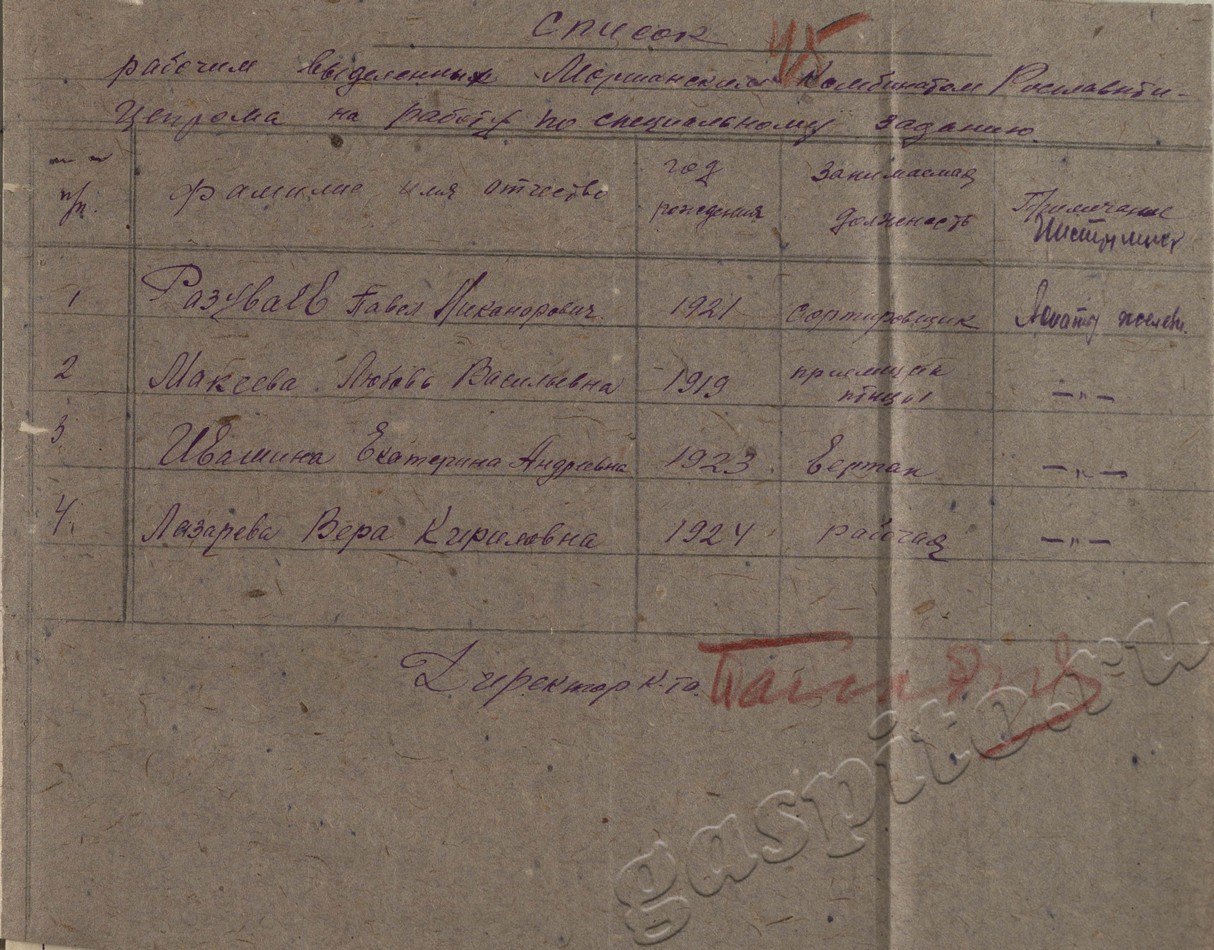 Список
45
рабочим выделенных Моршанским Комбинатом Росглавпти-
цепрома на работу по специальному заданию
п/п.
фамилие имя отчество
год рождения
занимаемая должность
Примечание
1 Разуваев Павел Никанорович. 1921 сортировщик
2 Макеева Любовь Васильевна 1919 приемщица птицы —"—
3 Ивашина Екатерина Андреевна 1923 Вертак —"—
4. Лазарева Вера Кириловна 1924 рабочая —"—
Директор К-та.
gaspito.ru